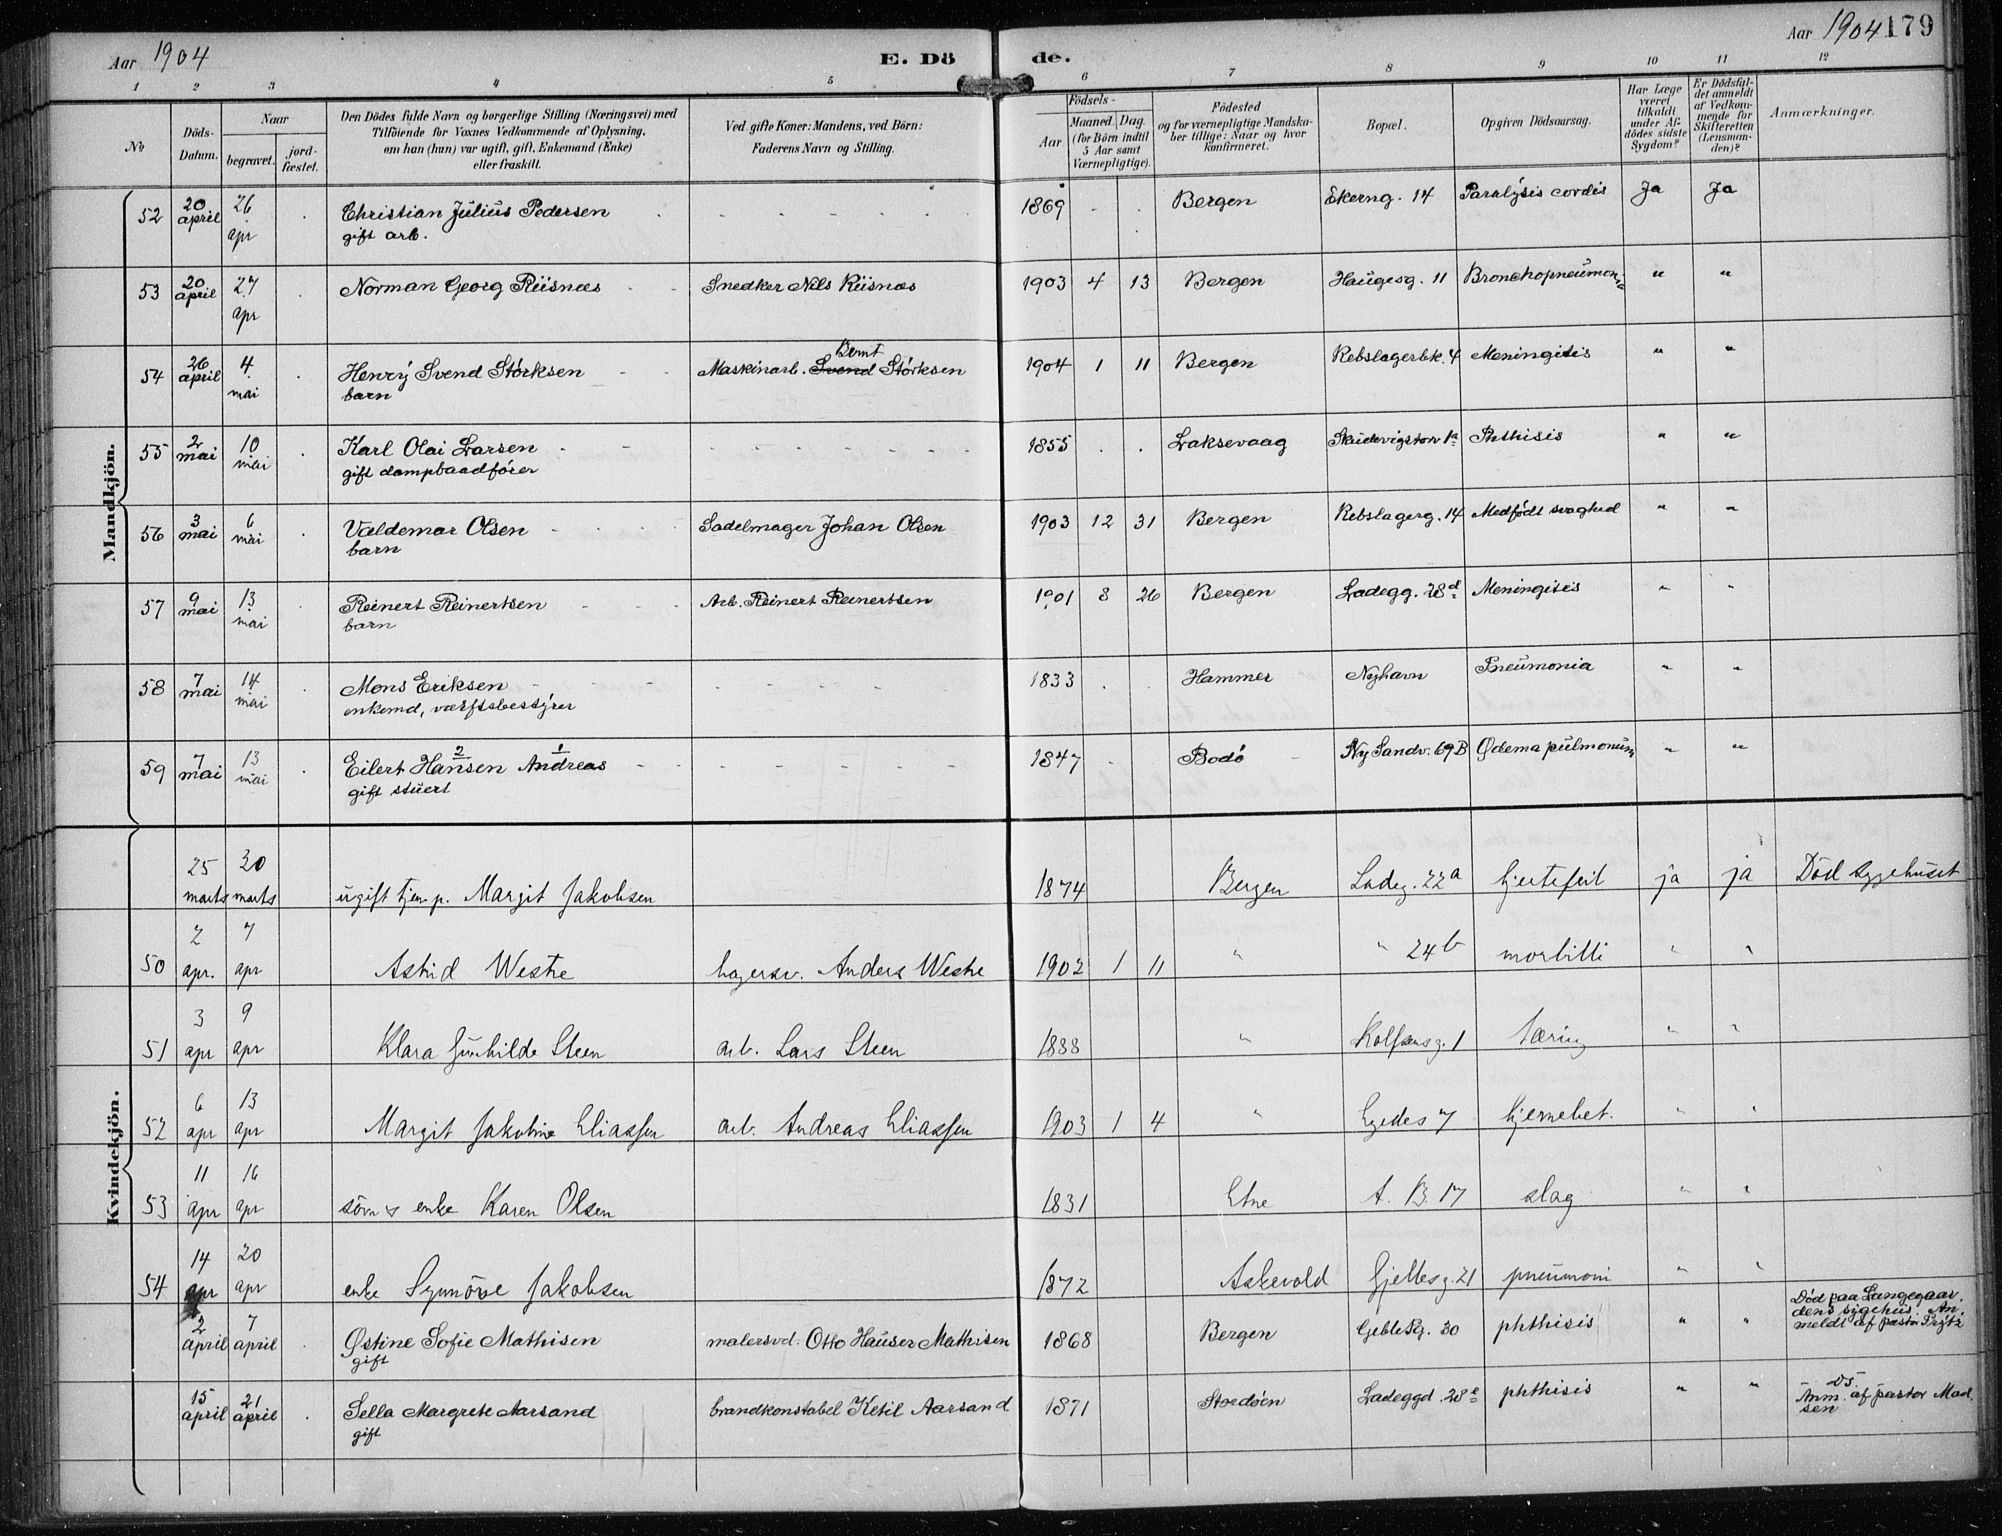 Aar 1904
E. Dö
de.
Aar 1904
179
1 2 3 4 5 6 7 8 9 10 11 12
No
Döds-Datum.
Naar
begravet.
jord-fæstet.
Den Dödes fulde Navn og borgerlige Stilling (Næringsvei) med
Tilföiende for Voxnes Vedkommende af Oplysning,
om han (hun) var ugift, gift, Enkemand (Enke)
eller fraskilt.
Ved gifte Koner: Mandens, ved Börn:
Faderens Navn og Stilling.
Födsels-
Aar
Maaned. Dag.
(for Börn indtil
5 Aar samt
Værnepligtige).
Födested
og for værnepligtige Mandska-
ber tillige: Naar og hvor
konfirmeret.
Bopæl.
Opgiven Dödsaarsag.
Har Læge
været
tilkaldt
under Af-
dödes sidste
Sygdom?
Er Dödsfal-
det anmeldt
af Vedkom-
mende for
Skifteretten
(Lensman-
den)?
Anmærkninger.
Mandkjön.
52 20 april 26 apr Christian Julius Pedersen 1869 Bergen Ekerng. 14 Paralysis cordis Ja Ja
gift arb.
53 20 april 27 apr Norman Georg Riisnæs Snedker Nils Riisnæs 1903 4 13 Bergen Haugesg. 11 Bronchopneumonia " "
Bernt
54 26 april 4 mai Henry Svend Störksen Maskinarb. Svend Störksen 1904 1 11 Bergen Rebslagerbk. 4 Meningitis " "
barn
55 2 mai 10 mai Karl Olai Larsen 1855 Laksevaag Skudevigstorv 1a Phthisis " "
gift dampbaadförer
56 3 mai 6 mai Valdemar Olsen Sadelmager Johan Olsen 1903 12 31 Bergen Rebslagerg. 14 Medfödt svaghed " "
barn
57 9 mai 13 mai Reinert Reinertsen Arb. Reinert Reinertsen 1901 8 26 Bergen Ladegg. 28d Meningitis " "
barn
58 7 mai 14 mai Mons Eriksen 1833 Hammer Nyhavn Pneumonia " "
enkemd, værftsbestyrer
2 1
59 7 mai 13 mai Eilert Hansen Andreas 1847 Bodö Ny Sandv. 69B Ødema pulmonum " "
gift stuert
Kvindekjön.
25 marts 30 marts ugift tjen.p. Margit Jakobsen 1874 Bergen Ladeg. 22a hjertefeil ja ja Död Sygehuset
50 2 apr. 7 apr Astrid Westre lagersv. Anders Westre 1902 1 11 " " 24b morbilli " "
51 3 apr 9 apr Klara Gunhilde Steen arb. Lars Steen 1888 " Rolfsensg. 1 tæring " "
52 6 apr 13 apr Margit Jakobine Eliassen arb. Andreas Eliassen 1903 1 4 " Egedes 7 hjernebet. " "
53 11 apr 16 apr enke Karen Olsen 1831 Etne A. B. 17 slag " "
54 14 apr 20 apr enke Synnöve Jakobsen 1872 Askevold Gjellesg. 21 pneumoni " "
2 april 7 april Østine Sofie Mathisen malersvd. Otto Hauser Mathisen 1868 Bergen Geblesg. 30 phthisis " " Död paa Lungegaar-
dens sygehus. An-
meldt af pastor Prytz
gift
15 april 21 april Sella Margrete Aarsand brandkonstabel Ketil Aarsand 1871 Stordöen Ladeggd. 28e phthisis " " Ds.
Anm. af pastor Mad-
sen
gift